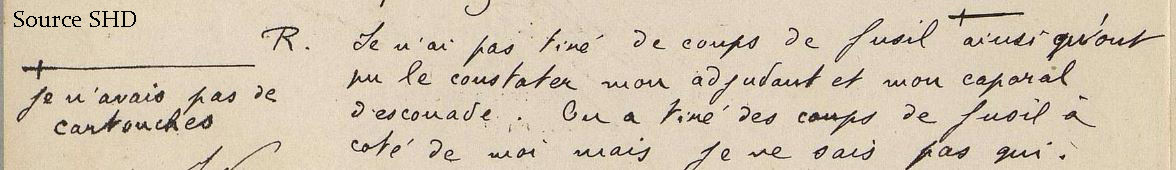 Source SHD
R. Je n'ai pas tiré de coups de fusil ainsi qu'ont
pu le constater mon adjudant et mon caporal
d'escouade. On a tiré des coups de fusil à
coté de moi mais je ne sais pas qui.
je n'avais pas de
cartouches